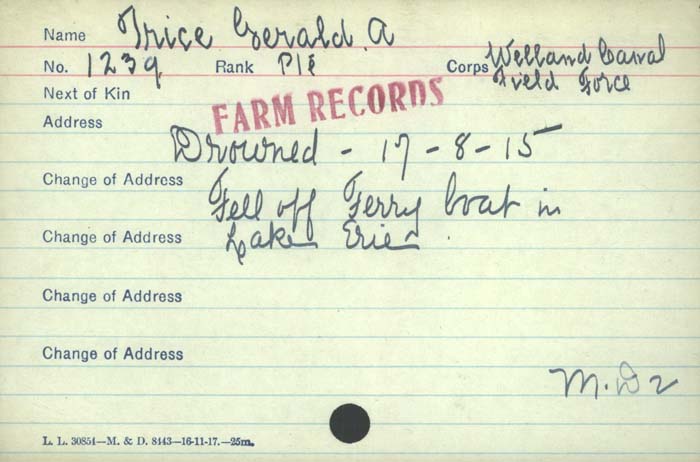 Name Trice Gerald. A
No. 1239 Rank Pte Corps Welland Canal
Field Force
Next of Kin
FARM RECORDS
Address
Drowned - 17 - 8 - 15
Change of Address
Fell off Ferry boat in
Change of Address Lake Erie.
Change of Address
Change of Address
M.D 2
L. L. 30854—M. & D. 8443—16-11-17.—25m.